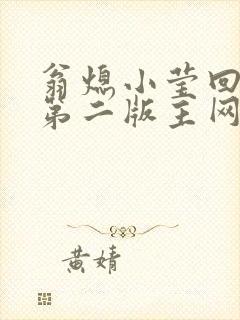 翁熄小莹回
第二版主网
黄婧